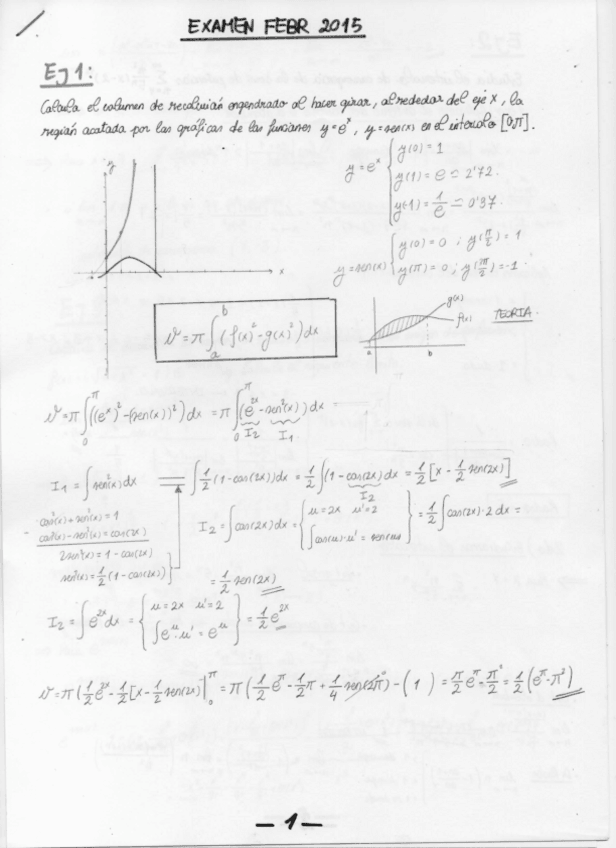 EXAMEN FEBR 2015
Ej 1:
Calcula el volumen de revolución engendrado al hacer girar, alrededor del eje X, la
región acotada por las gráficas de las funciones y=e^x, y=sen(x) en el intervalo [0,π].
y
x
y=e^x { y(0)=1
y(1)=e≃2'72.
y(-1)=1/e≃0'37.
y=sen(x) { y(0)=0 ; y(π/2)=1
y(π)=0 ; y(3π/2)=-1
v=π∫_a^b (f(x)²-g(x)²)dx
g(x)
f(x)
a b
TEORIA.
v=π∫_0^π((e^x)²-(sen(x))²)dx = π∫_0^π(e^2x - sen²(x))dx
I2 I1
I1=∫sen²(x)dx = ∫1/2(1-cos(2x))dx = 1/2∫(1-cos(2x)dx = 1/2[x-1/2 sen(2x)]
I2
cos²(x)+sen²(x)=1
cos²(x)-sen²(x)=cos(2x)
2sen²(x)=1-cos(2x)
sen²(x)=1/2(1-cos(2x))
I2=∫cos(2x)dx = { u=2x u'=2
∫cos(u)·u'=sen(u) } = 1/2∫cos(2x)·2dx =
= 1/2 sen(2x)
I2=∫e^2x dx = { u=2x u'=2
∫e^u·u'=e^u } = 1/2 e^2x
v=π(1/2 e^2x - 1/2[x-1/2 sen(2x)]|_0^π = π(1/2 e^π - 1/2 π + 1/4 sen(2π)^0) - (1) = π/2 e^π - π²/2 = 1/2(e^π - π²)
-1-